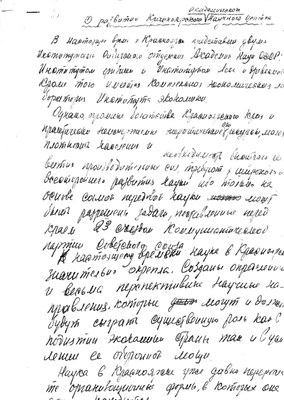 академического
О развитии Красноярского научного центра
В настоящее время в Красноярске представлены двумя
Институтами Сибирского отделения Академии Наук СССР:
Институтом физики и Институтом леса и древесины.
Кроме того имеется Комплексная экономическая ла-
боратория Института экономики
Однако огромные богатства Красноярского края и
населения и необходимость быстрого
вития производительных сил требуют широкого и
всестороннего развития науки ибо только на
основе самых передовых науки могут
быть разрешены задачи, поставленные перед
краем 23 съездом Коммунистической
партии Советского Союза
В настоящее время наука в Красноярске
значительно окрепла. Созданы определенные
и весьма перспективные научные на-
правления, которые могут и должны
будут сыграть существенную роль как в
поднятии экономики страны так и в уси-
лении ее оборонной мощи.
Наука в Красноярске уже давно переросла
те организационные формы, в которых она